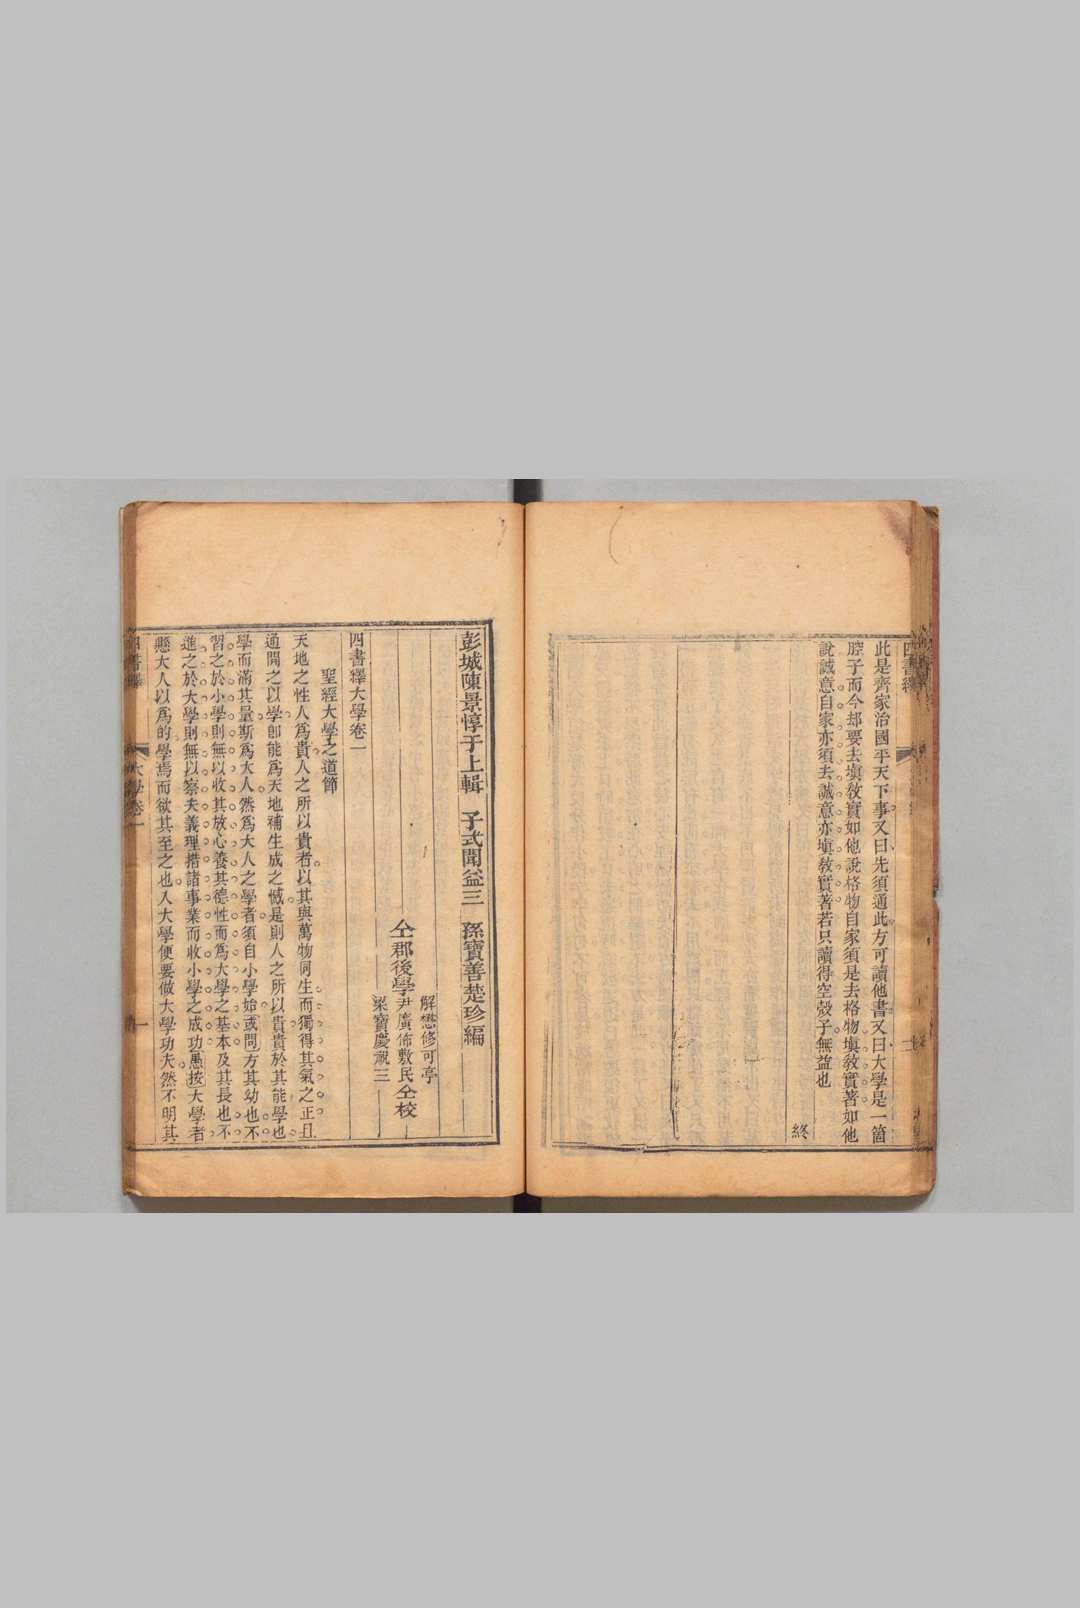 此是齊家治國平天下事又曰先須通此方可讀他書又曰大學是一箇
腔子而今却要去塡敎實如他說格物自家須是去格物塡敎實著如他
說誠意自家亦須去誠意亦塡敎實著若只讀得空殼子無益也
終
彭城陳景惇于上輯 子式聞益三 孫寶善楚珍編
解懋修可亭
仝郡後學尹廣佈敷民仝校
梁寶慶覲三
四書繹大學卷一
聖經大學之道節
天地之性人爲貴人之所以貴者以其與萬物同生而獨得其氣之正且
通開之以學卽能爲天地補生成之憾是則人之所以貴貴於其能學也
學而滿其量斯爲大人然爲大人之學者須自小學始或問方其幼也不
習之於小學則無以收其放心養其德性而爲大學之基本及其長也不
進之於大學則無以察夫義理措諸事業而收小學之成功愚按大學者
懸大人以爲的學焉而欲其至之也入大學便要做大學功夫然不明其
四書繹
大學卷一
一